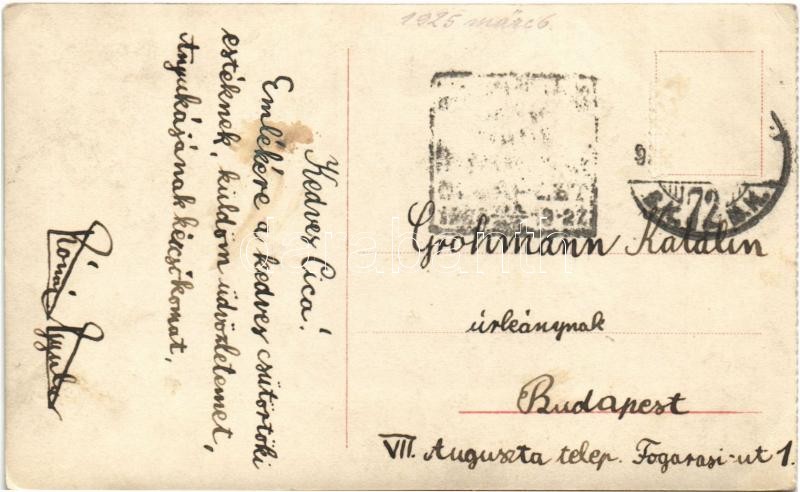 1925 márc 6.
Kedves Cica!
Emlékére a kedves csütörtöki
estéknek, küldöm üdvözletemet,
Anyukájának kézcsókomat,
Rónai Gyula
Grohmann Katalin
úrleánynak
Budapest
VII. Auguszta telep. Fogarasi-ut 1.
72
darabanth